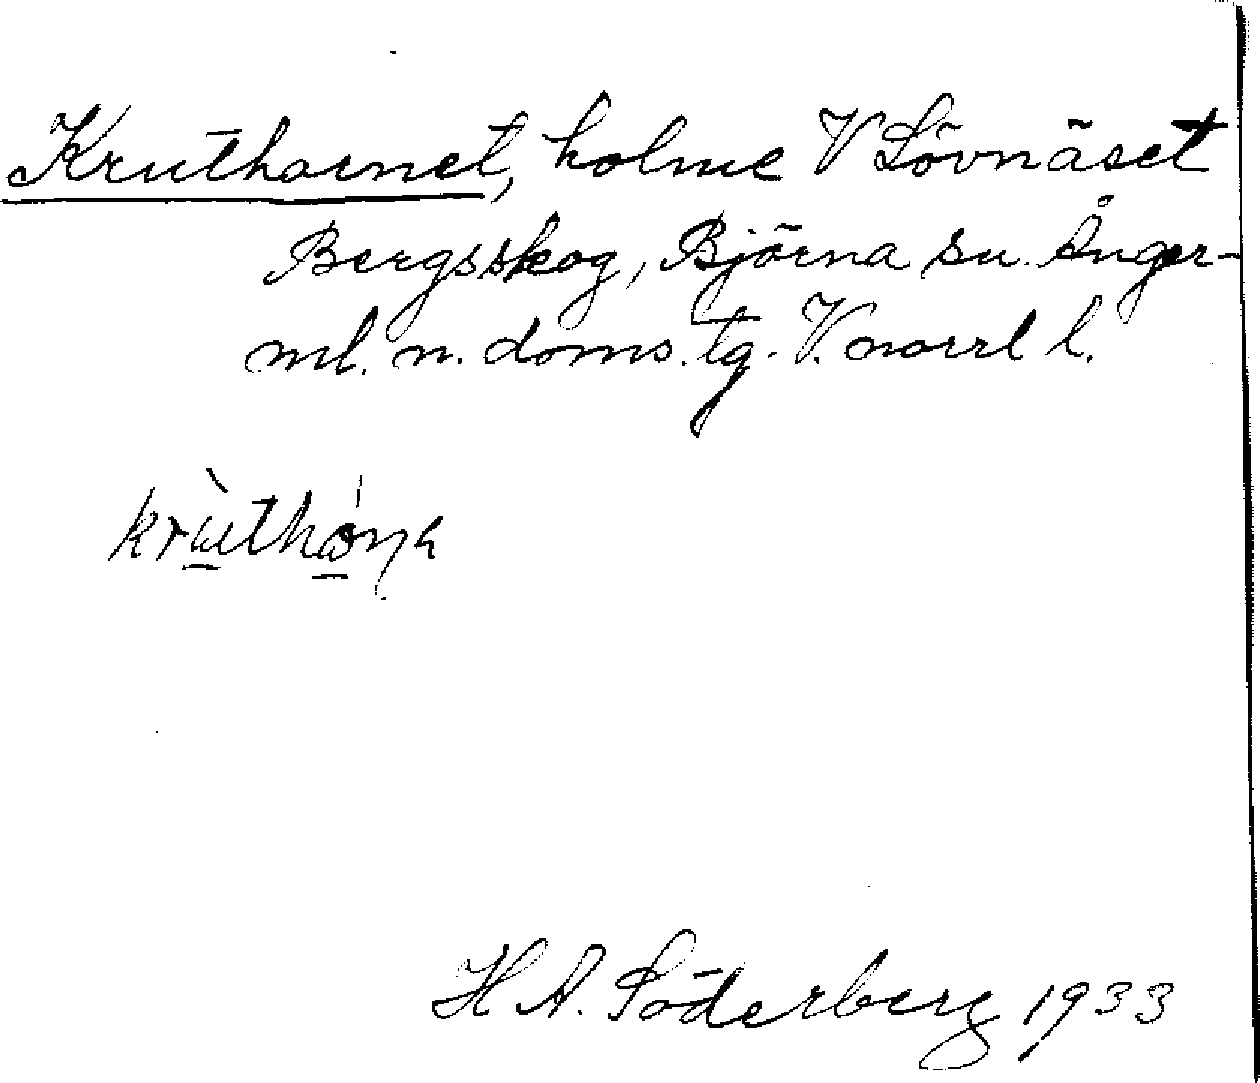 Kruthornet, holme V Lövnäset
Bergsskog, Björna sn. Ånger-
ml. n. doms. tg. V. norrl l.
H A. Söderberg 1933